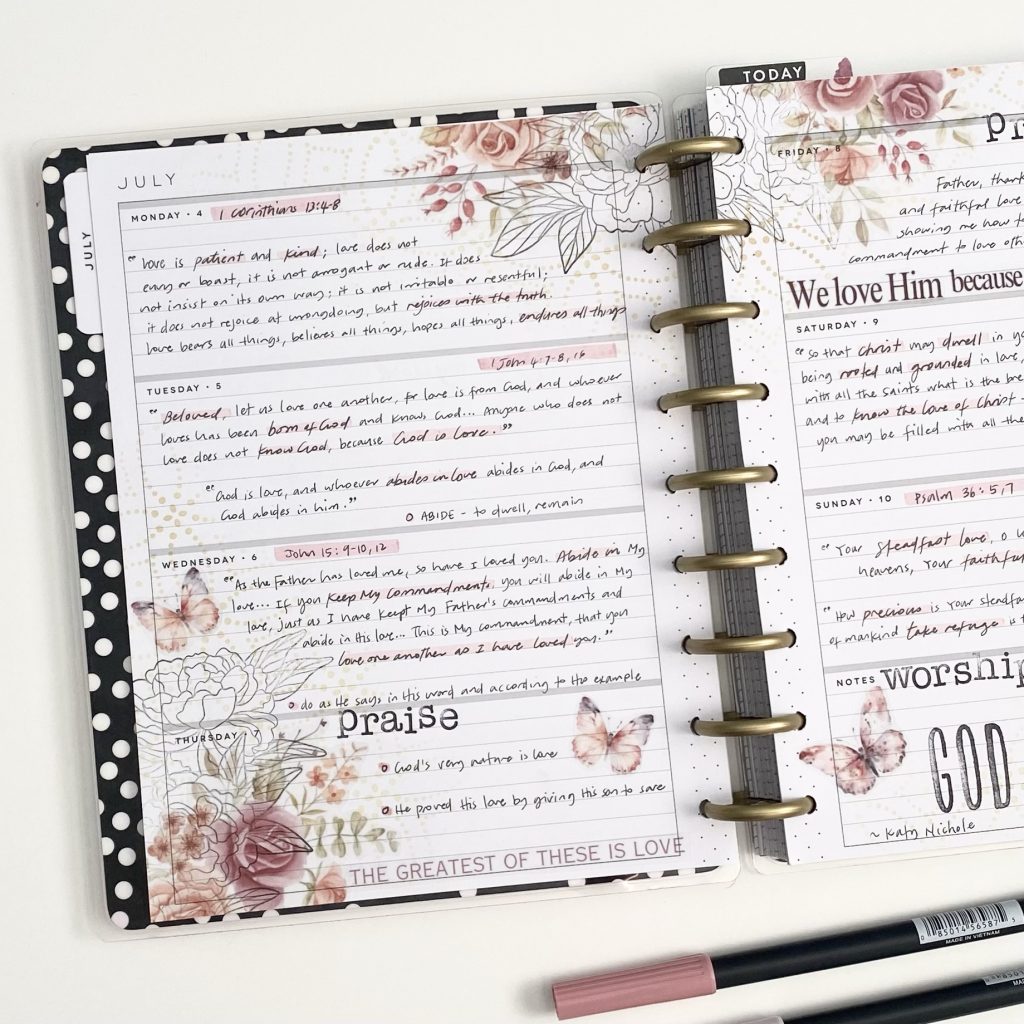 JULY
JULY
MONDAY • 4 1 Corinthians 13:4-8
"Love is patient and kind; love does not
envy or boast, it is not arrogant or rude. It does
not insist on its own way; it is not irritable or resentful;
it does not rejoice at wrongdoing, but rejoices with the truth.
love bears all things, believes all things, hopes all things, endures all things
1 John 4:7-8, 16
TUESDAY • 5
"Beloved, let us love one another, for love is from God, and whoever
loves has been born of God and knows God... Anyone who does not
love does not know God, because God is love."
"God is love, and whoever abides in love abides in God, and
God abides in him."
ABIDE - to dwell, remain
WEDNESDAY • 6 John 15:9-10, 12
"As the Father has loved me, so have I loved you. Abide in My
love... If you keep My commandments, you will abide in My
love, just as I have kept My Father's commandments and
abide in His love... This is My commandment, that you
love one another as I have loved you."
do as He says in His word and according to the example
praise
THURSDAY • 7
God's very nature is love
He proved His love by giving His son to save
THE GREATEST OF THESE IS LOVE
TODAY
pr
FRIDAY • 8
Father, thank
and faithful love
showing me how to
commandment to love oth
We love Him because
SATURDAY • 9
"so that Christ may dwell in yo
being rooted and grounded in love,
with all the saints what is the bre
and to know the love of Christ
you may be filled with all the
SUNDAY • 10 Psalm 36:5,7
"Your steadfast love, O
heavens, Your faithfu
How precious is Your stendfa
of mankind take refuge
NOTES worship
GOD
~ Katy Nichole
0 85014 56587 5
MADE IN VIETNAM
85014
MA